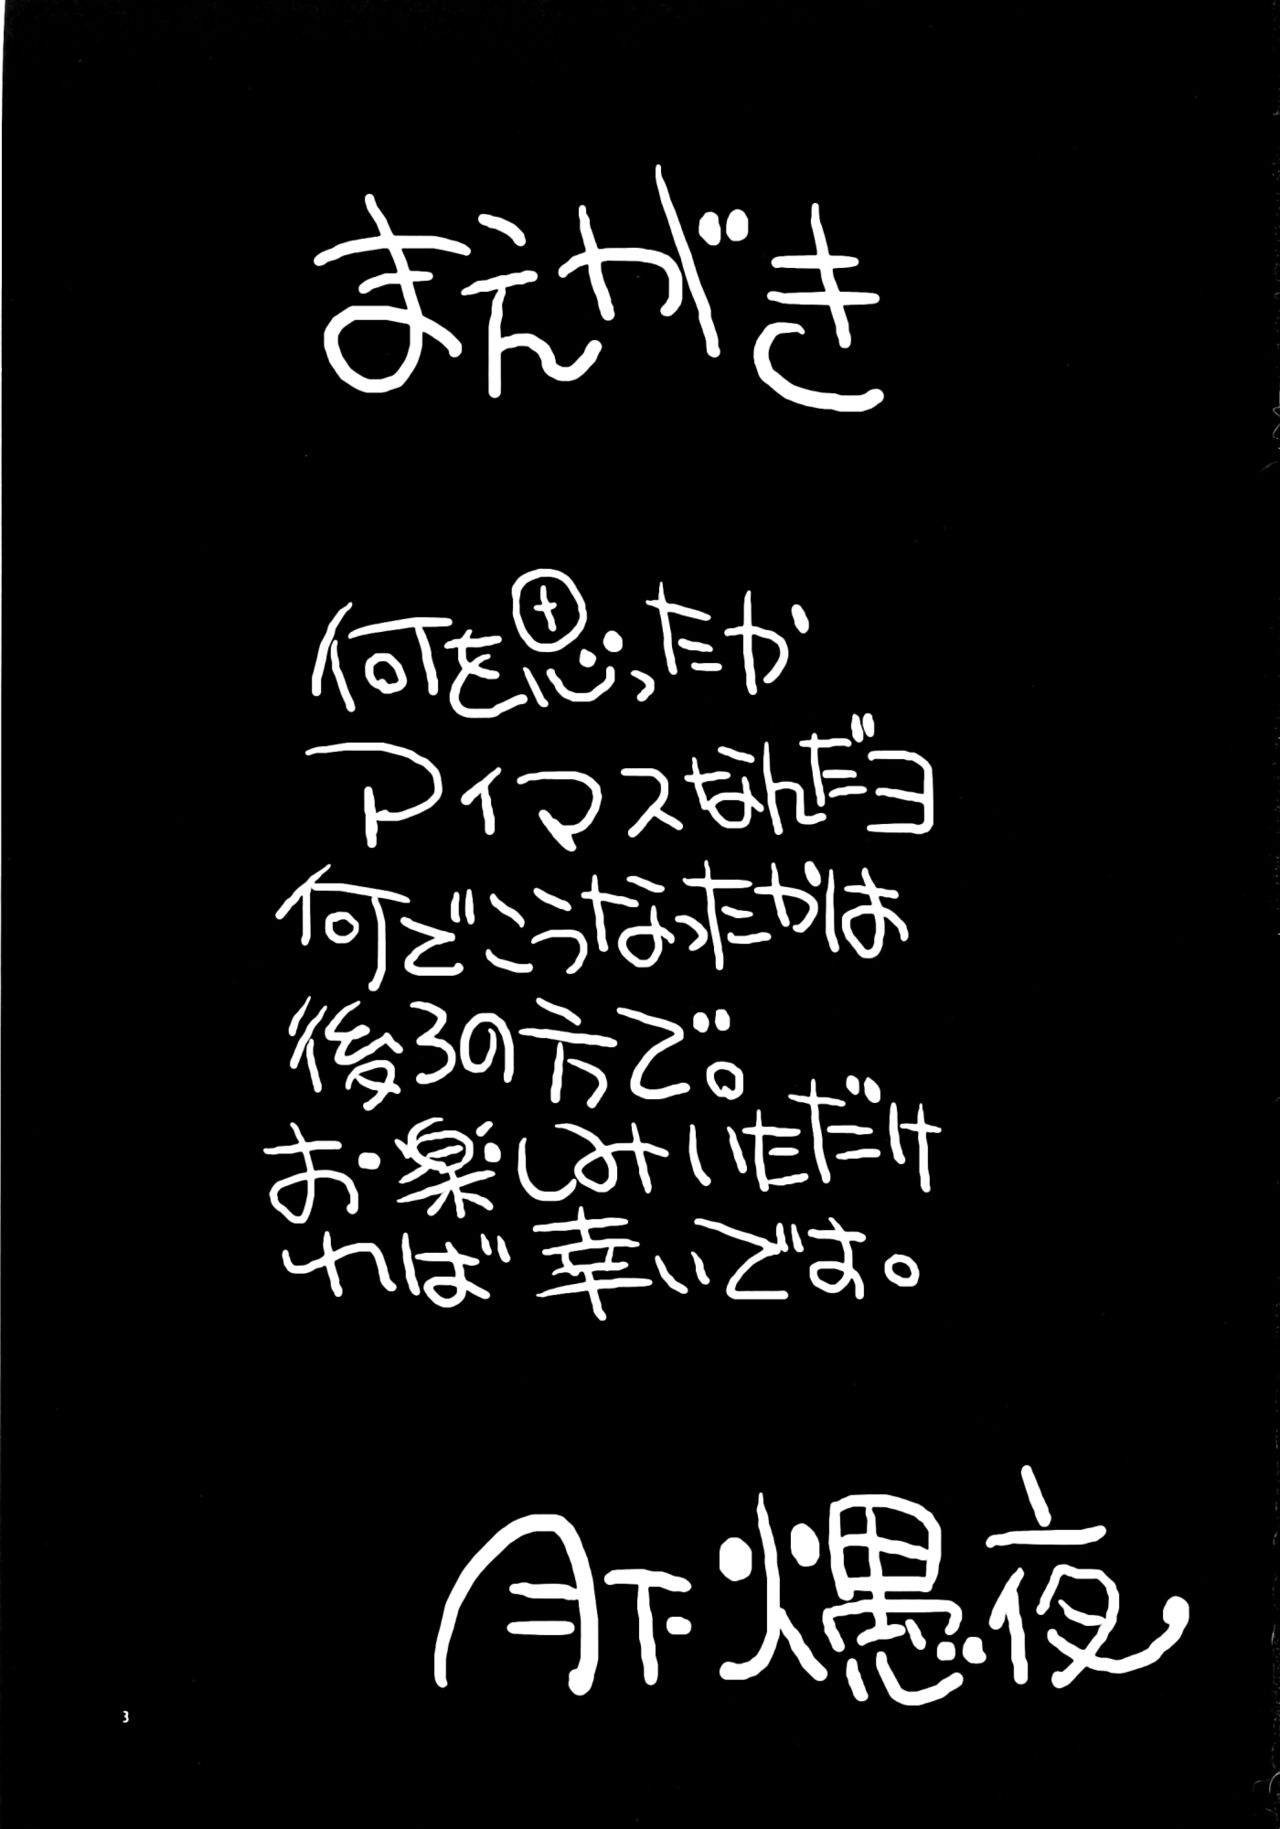 まえがき
何を思ったか
アイマスなんだヨ
何でこうなったかは
後ろの方で。
お楽しみいただけ
れば幸いです。
月下 夜
3